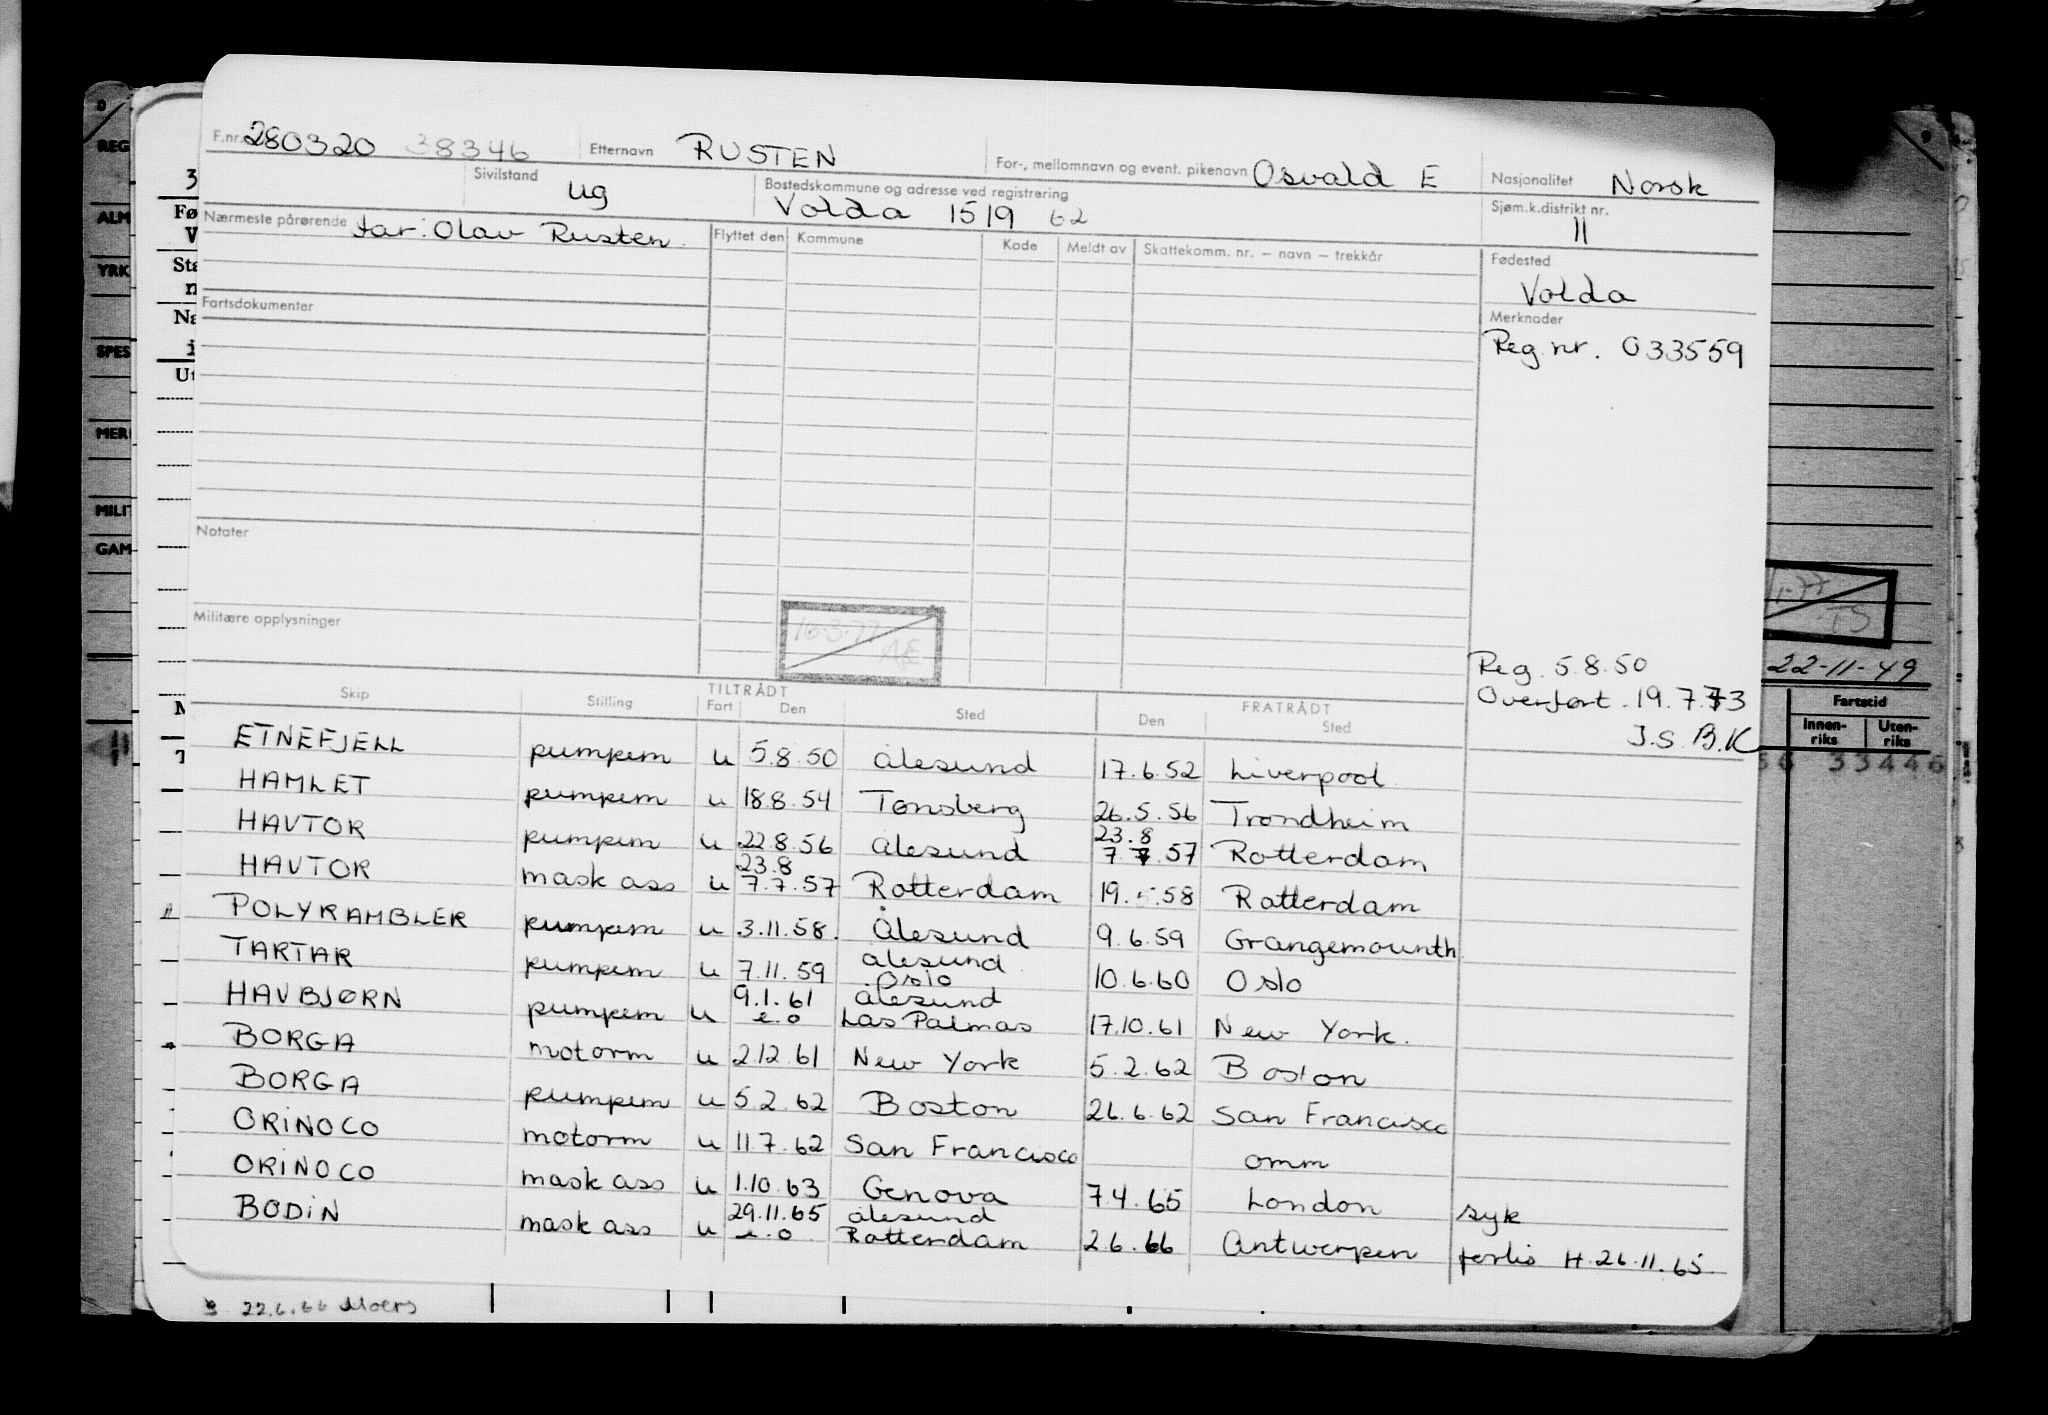 F.nr. 280320 38346 Etternavn RUSTEN For-, mellomnavn og event. pikenavn Osvald E Nasjonalitet Norsk
Sivilstand ug Bostedskommune og adresse ved registrering Volda 1519 62 Sjøm.k.distrikt nr. 11
Nærmeste pårørende far: Olav Rusten. Flyttet den Kommune Kode Meldt av Skattekomm. nr. – navn – trekkår Fødested
Volda
Fartsdokumenter Merknader
Reg. nr. 033559
Notater
Militære opplysninger
16.3.77
Reg. 5.8.50
Overført. 19.7.73
J.S. B.K
Skip Stilling TILTRÅDT Fart Den Sted FRATRÅDT Den Sted
ETNEFJELL pumpem u 5.8.50 Ålesund 17.6.52 Liverpool
HAMLET pumpem u 18.8.54 Tønsberg 26.5.56 Trondheim
HAVTOR pumpem u 22.8.56 Ålesund 23.8 7.7.57 Rotterdam
HAVTOR mask ass u 23.8 7.7.57 Rotterdam 19. .58 Rotterdam
POLYRAMBLER pumpem u 3.11.58. Ålesund 9.6.59 Grangemounth
TARTAR pumpem u 7.11.59 Ålesund Oslo 10.6.60 Oslo
HAVBJØRN pumpem u 9.1.61 e.o Ålesund Las Palmas 17.10.61 New York.
BORGA motorm u 2.12.61 New York 5.2.62 Boston
BORGA pumpem u 5.2.62 Boston 26.6.62 San Francisco
ORINOCO motorm u 11.7.62 San Francisco omm
ORINOCO mask ass u 1.10.63 Genova 7.4.65 London syk
BODIN mask ass u 29.11.65 e.o. Ålesund Rotterdam 2.6.66 Antwerpen forlis H.26.11.65
22.6.66 Moers
REG
ALM
YRK
SPES
MERI
MILIT
GAM
22-11-49
Fartstid
Innen-
riks
Uten-
riks